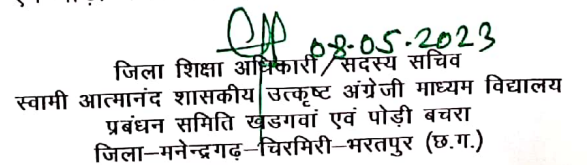 08.05.2023
जिला शिक्षा अधिकारी/सदस्य सचिव
स्वामी आत्मानंद शासकीय उत्कृष्ट अंग्रेजी माध्यम विद्यालय
प्रबंधन समिति खडगवां एवं पोड़ी बचरा
जिला–मनेन्द्रगढ़–चिरमिरी–भरतपुर (छ.ग.)